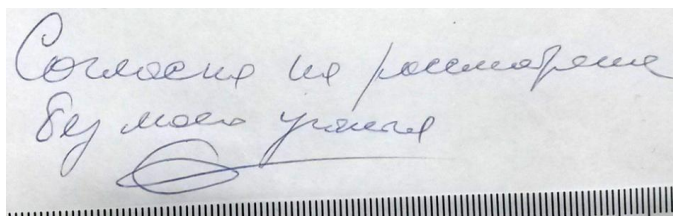 Согласна на рассмотрение
без моего участия